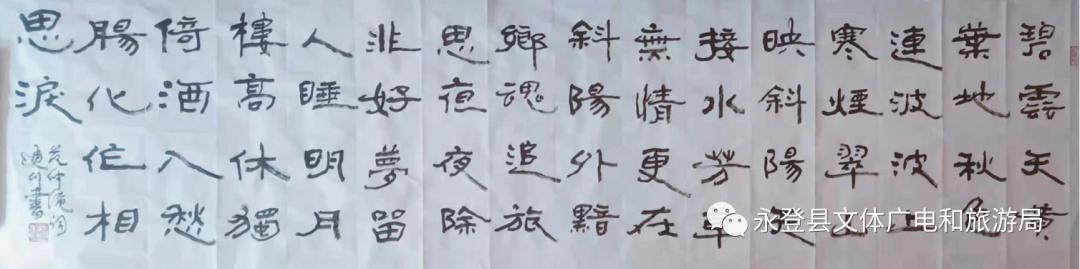 碧雲天黄
葉地秋色
連波波上
寒煙翠山
映斜陽天
接水芳草
無情更在
斜陽外黯
鄉魂追旅
思夜夜除
非好夢留
人睡明月
樓高休獨
倚酒入愁
腸化作相
思淚
范仲淹詞
書
永登县文体广电和旅游局